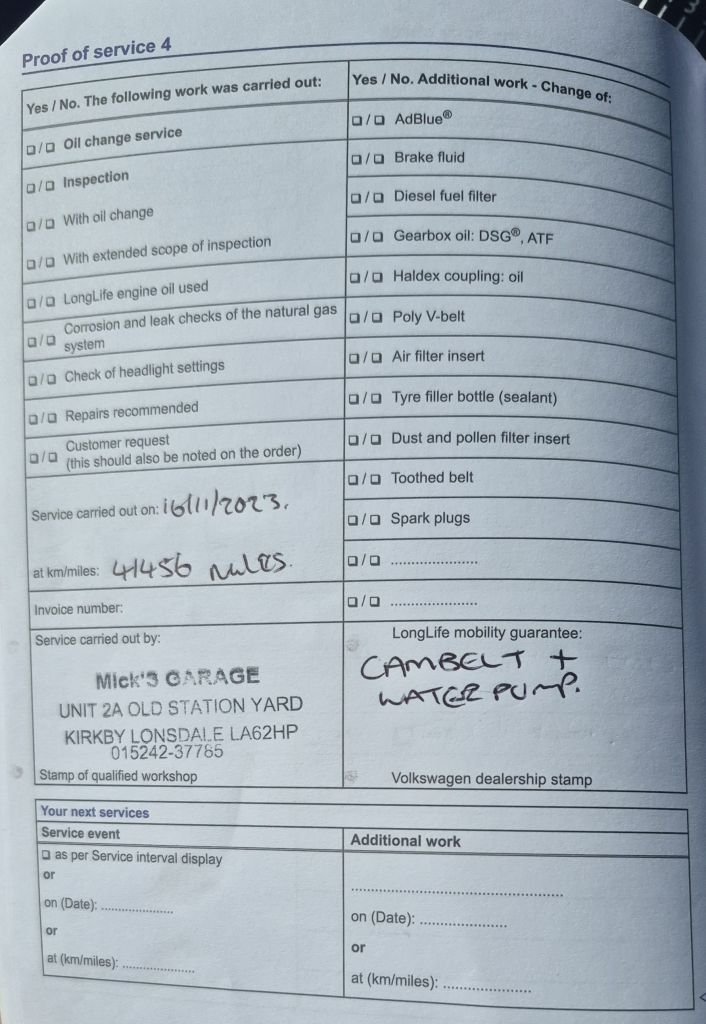 Proof of service 4
Yes / No. The following work was carried out:
❑/❑ Oil change service
❑/❑ Inspection
❑/❑ With oil change
❑/❑ With extended scope of inspection
❑/❑ LongLife engine oil used
❑/❑ Corrosion and leak checks of the natural gas
system
❑/❑ Check of headlight settings
❑/❑ Repairs recommended
❑/❑ Customer request
(this should also be noted on the order)
Service carried out on: 16/11/2023.
at km/miles: 41456 miles.
Invoice number:
Service carried out by:
Mick'S GARAGE
UNIT 2A OLD STATION YARD
KIRKBY LONSDALE LA62HP
015242-37785
Stamp of qualified workshop
Yes / No. Additional work - Change of:
❑/❑ AdBlue®
❑/❑ Brake fluid
❑/❑ Diesel fuel filter
❑/❑ Gearbox oil: DSG®, ATF
❑/❑ Haldex coupling: oil
❑/❑ Poly V-belt
❑/❑ Air filter insert
❑/❑ Tyre filler bottle (sealant)
❑/❑ Dust and pollen filter insert
❑/❑ Toothed belt
❑/❑ Spark plugs
❑/❑ ......................
❑/❑ ......................
LongLife mobility guarantee:
CAMBELT +
WATER PUMP.
Volkswagen dealership stamp
Your next services
Service event
❑ as per Service interval display
or
on (Date): ..................
or
at (km/miles): ..................
Additional work
....................................................
on (Date): ......................
or
at (km/miles): ......................